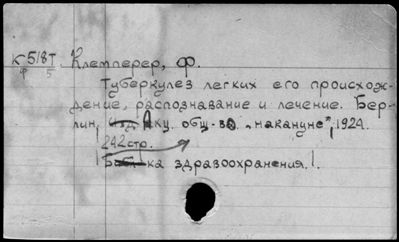 К518Т Клемперер, Ф.
Ф 5
Туберкулез легких его происхож-
дение, распознавание и лечение. Бер-
лин, изд Аку. общ-во „накануне“, 1924.
242стр.
Б-ка здравоохранения.